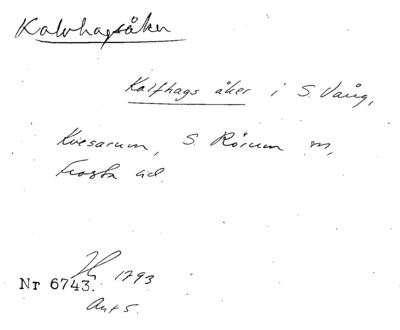 Kalvhagsåker
Kalfhags åker i S. Vång,
Kvesarum, S. Rörum sn,
Frosta hd.
1793
Nr 6743.
Akt 5.